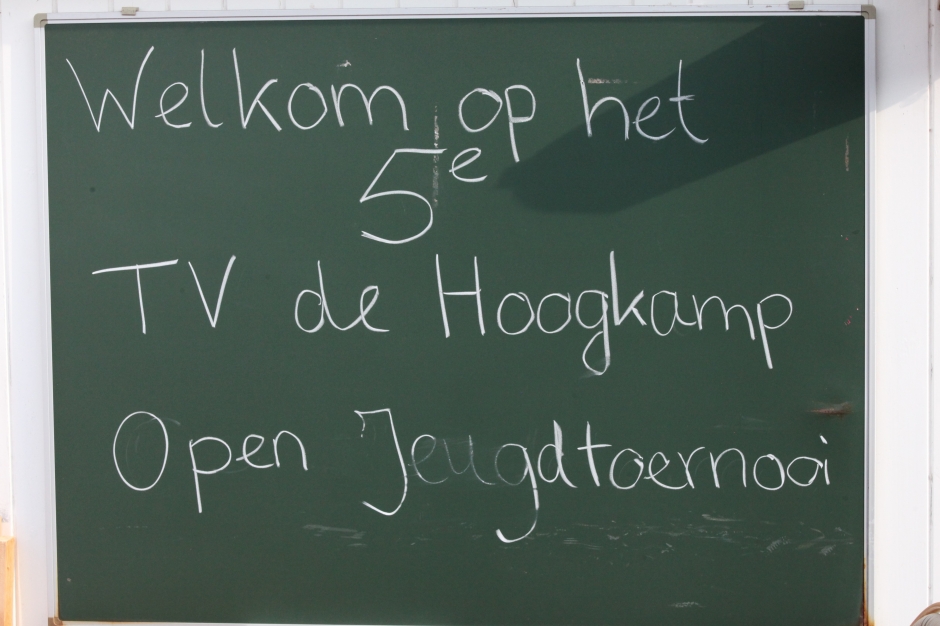 Welkom op het
5e
TV de Hoogkamp
Open Jeugdtoernooi